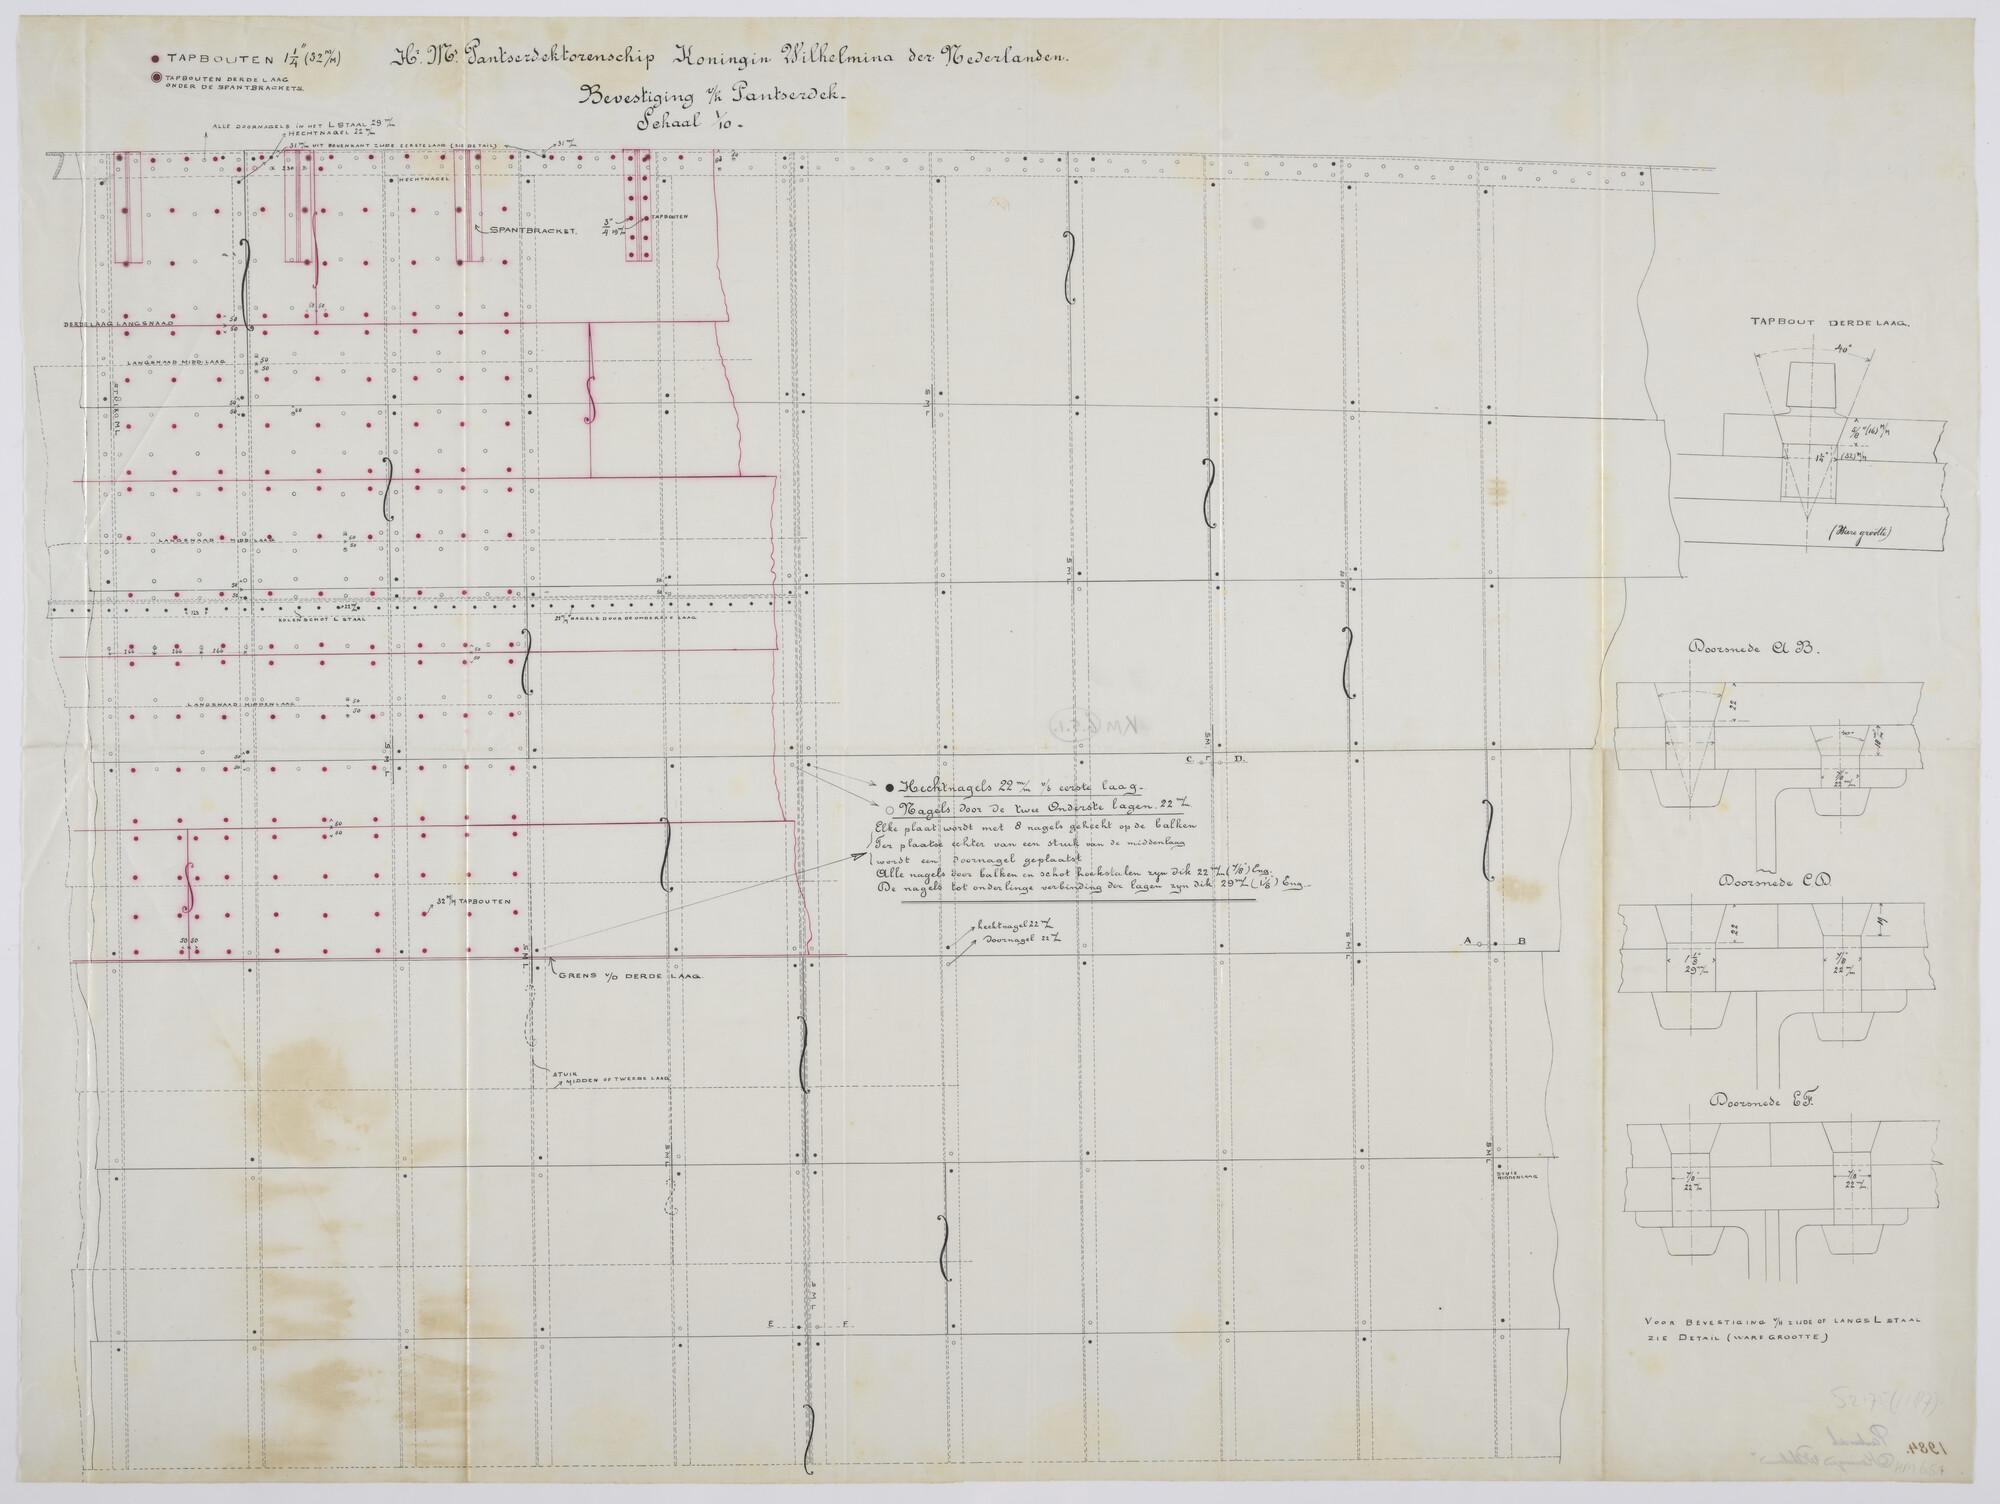 TAPBOUTEN 1 1/4" (32 m/m)
TAPBOUTEN DERDE LAAG
ONDER DE SPANTBRACKETS.
Hr. Ms. Pantserdektorenschip Koningin Wilhelmina der Nederlanden.
Bevestiging v/h Pantserdek.
Schaal 1/10.
ALLE DOORNAGELS IN HET L STAAL 29 m/m
HECHTNAGEL 22 m/m
31 m/m UIT BOVENKANT ZIJDE EERSTE LAAG (ZIE DETAIL)
31 m/m
HECHTNAGEL
230
SPANTBRACKET.
3/4" 19 m/m
TAPBOUTEN
50 50
DERDE LAAG LANGSNAAD
50
50
LANGSNAAD MIDD: LAAG
50
50
STUIK M L
S M L
LANGSNAAD MIDD: LAAG
50
50
S M L
123
22 m/m
KOLENSCHOT L STAAL
22 m/m NAGELS DOOR DE ONDERSTE LAAG
166 166 166
50
50
LANGSNAAD MIDDENLAAG
50
50
S M L
S M L
C D.
Hechtnagels 22 m/m v/d eerste laag.
Nagels door de twee Onderste lagen. 22 m/m
Elke plaat wordt met 8 nagels gehecht op de balken
Ter plaatse echter van een stuik van de middenlaag
wordt een doornagel geplaatst
Alle nagels door balken en schot hoekstalen zyn dik 22 m/m (7/8") Eng.
De nagels tot onderlinge verbinding der lagen zyn dik 29 m/m (1 1/8") Eng.
50
50
32 m/m TAPBOUTEN
50 50
hechtnagel 22 m/m
Doornagel 22 m/m
S M L
S M L
A B
GRENS v/D DERDE LAAG.
STUIK
MIDDEN OF TWEEDE LAAG
S M L
S M L
STUIK
MIDDENLAAG
S M L
E F
TAPBOUT DERDE LAAG.
40°
5/8" (16) m/m
1 1/4" (32) m/m
(Ware grootte)
Doorsnede A B.
22
40°
19 m/m
7/8"
22 m/m
Doorsnede C D
22
19
1 1/8"
29 m/m
7/8"
22 m/m
Doorsnede E F.
7/8"
22 m/m
7/8"
22 m/m
VOOR BEVESTIGING v/H ZIJDE OF LANGS L STAAL
ZIE DETAIL (WARE GROOTTE)
1984.